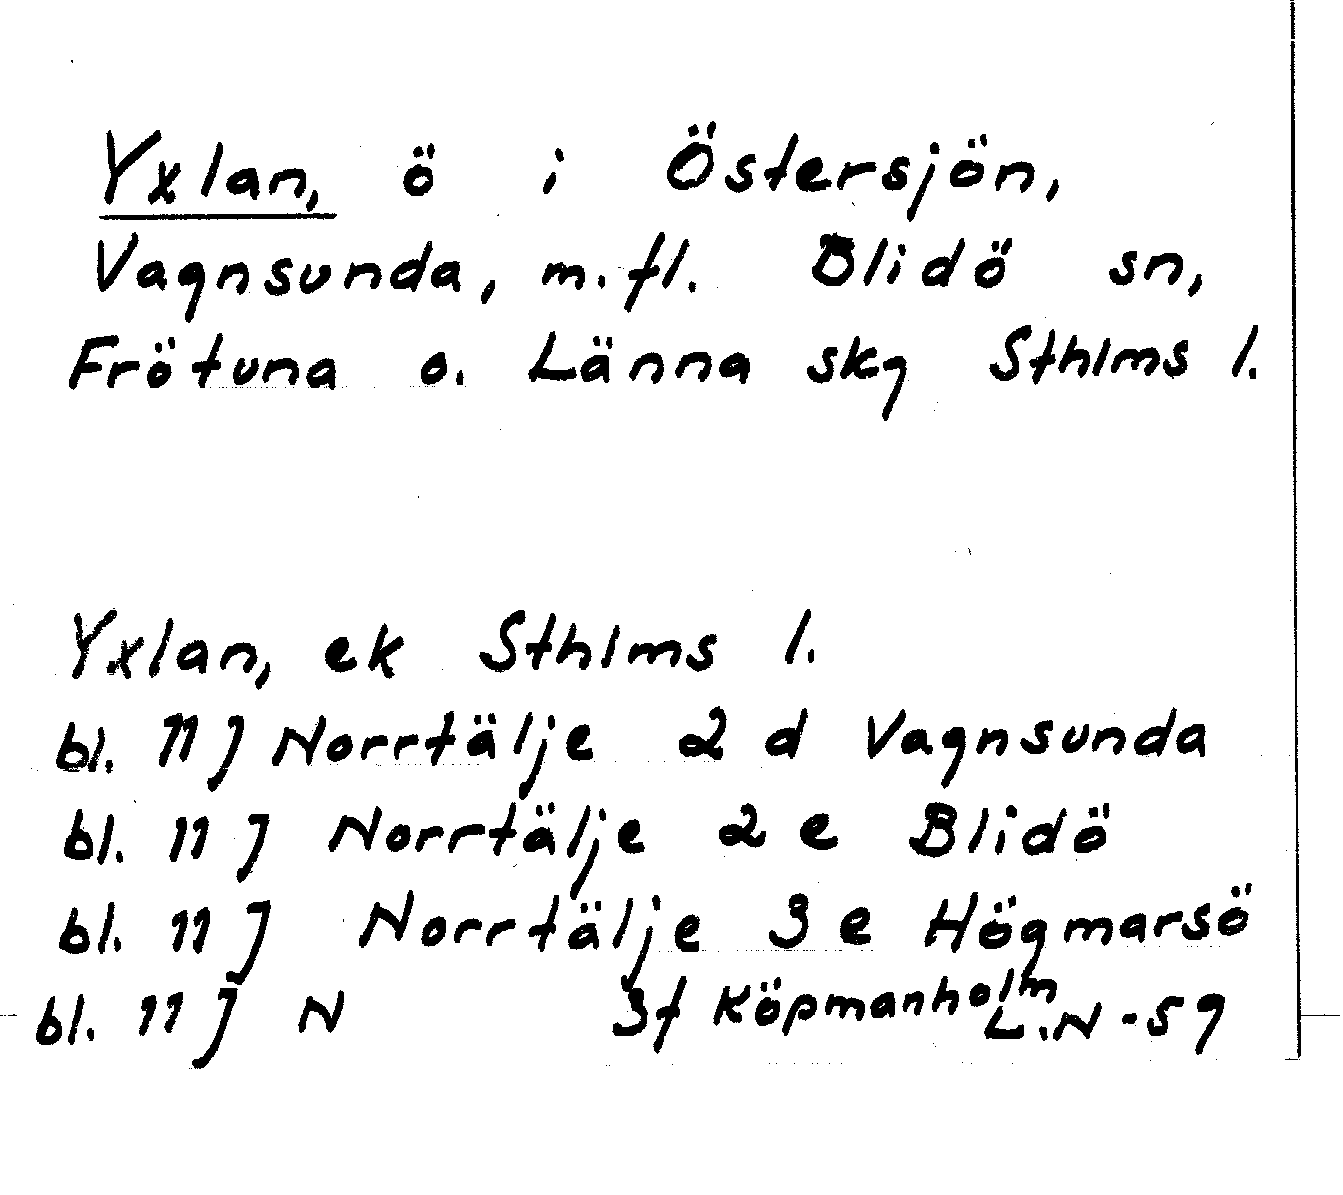 Yxlan, ö i Östersjön,
Vagnsunda, m.fl. Blidö sn,
Frötuna o. Länna skg Sthlms l.
Yxlan, ek Sthlms l.
bl. 11 J Norrtälje 2 d Vagnsunda
bl. 11 J Norrtälje 2 e Blidö
bl. 11 J Norrtälje 3 e Högmarsö
bl. 11 J N 3f Köpmanholm
L.N -59